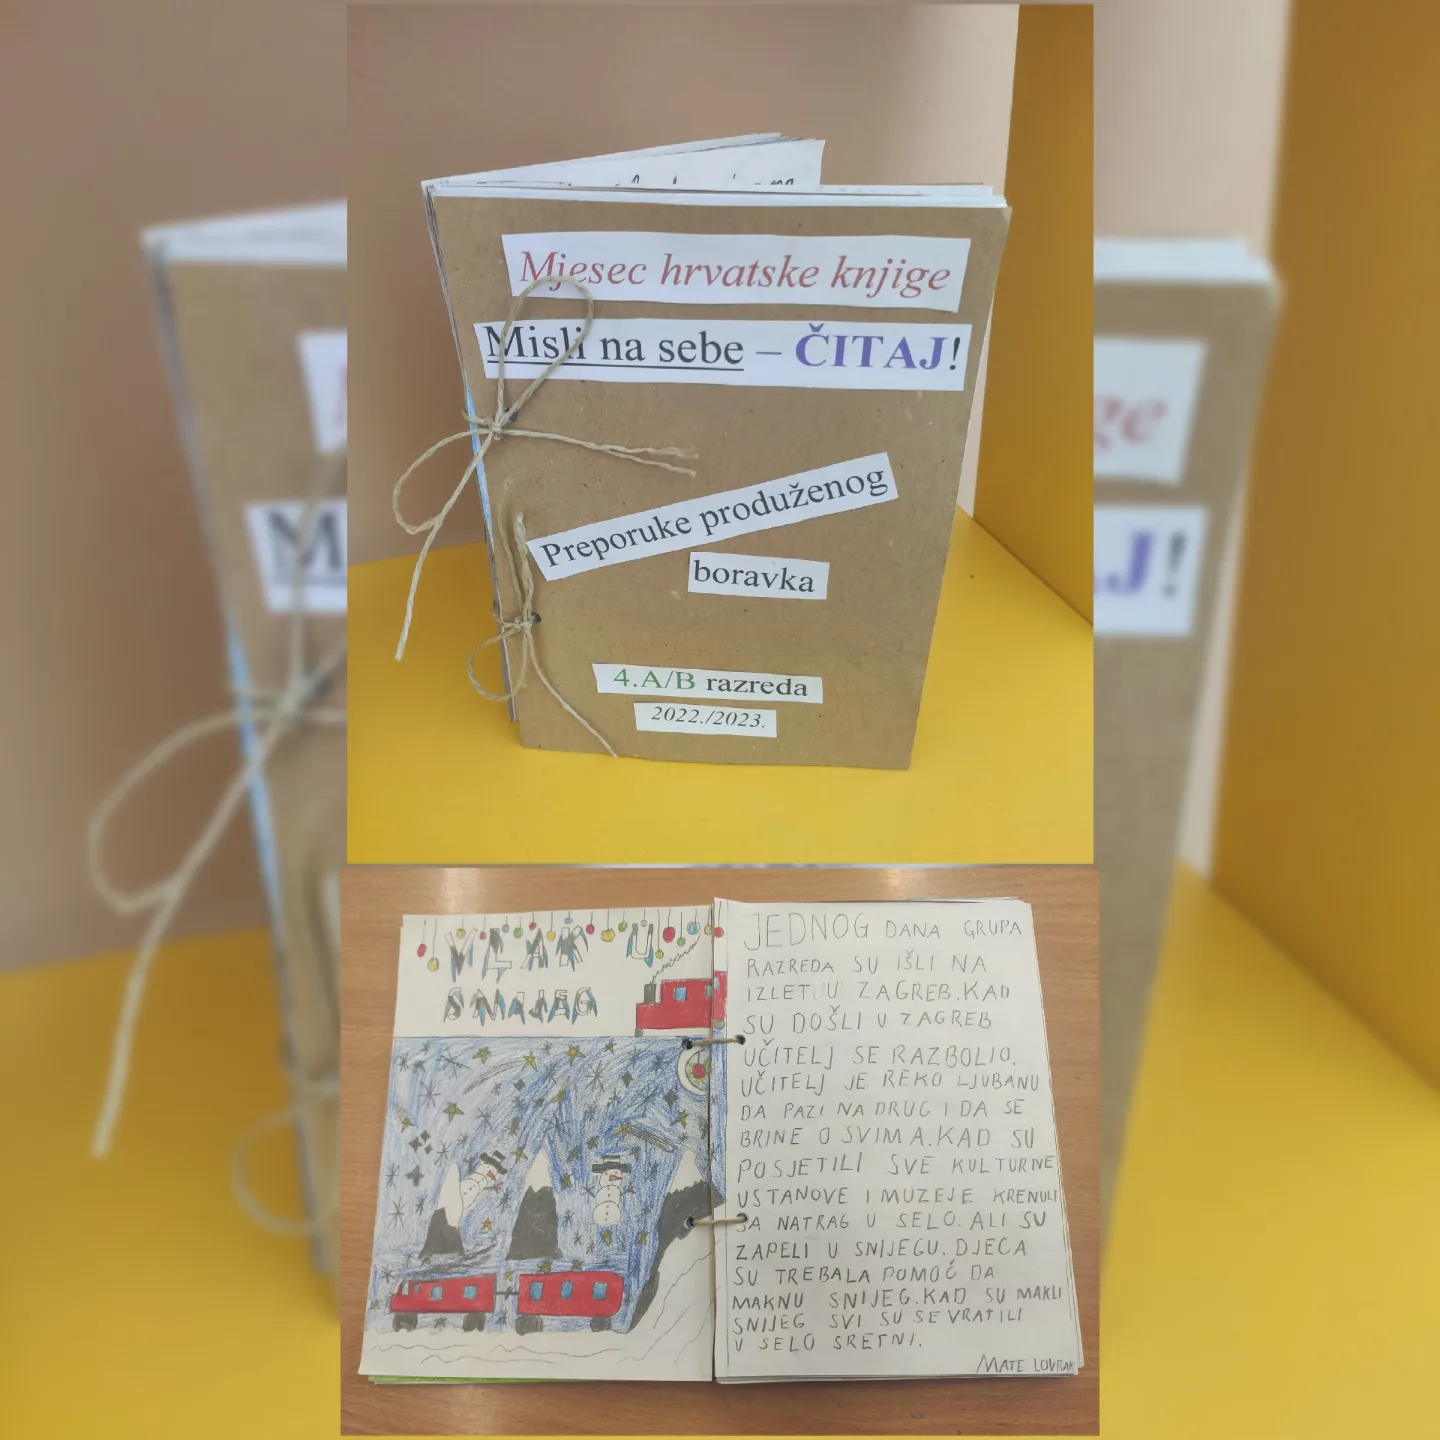 Mjesec hrvatske knjige
Misli na sebe – ČITAJ!
Preporuke produženog
boravka
4.A/B razreda
2022./2023.
VLAK U
SNIJEG
JEDNOG DANA GRUPA
RAZREDA SU IŠLI NA
IZLET U ZAGREB. KAD
SU DOŠLI U ZAGREB
UČITELJ SE RAZBOLIO.
UČITELJ JE REKO LJUBANU
DA PAZI NA DRUG I DA SE
BRINE O SVIMA. KAD SU
POSJETILI SVE KULTURNE
USTANOVE I MUZEJE KRENULI
SA NATRAG U SELO. ALI SU
ZAPELI U SNIJEGU. DJECA
SU TREBALA POMOĆ DA
MAKNU SNIJEG. KAD SU MAKLI
SNIJEG SVI SU SE VRATILI
U SELO SRETNI.
MATE LOVRAK